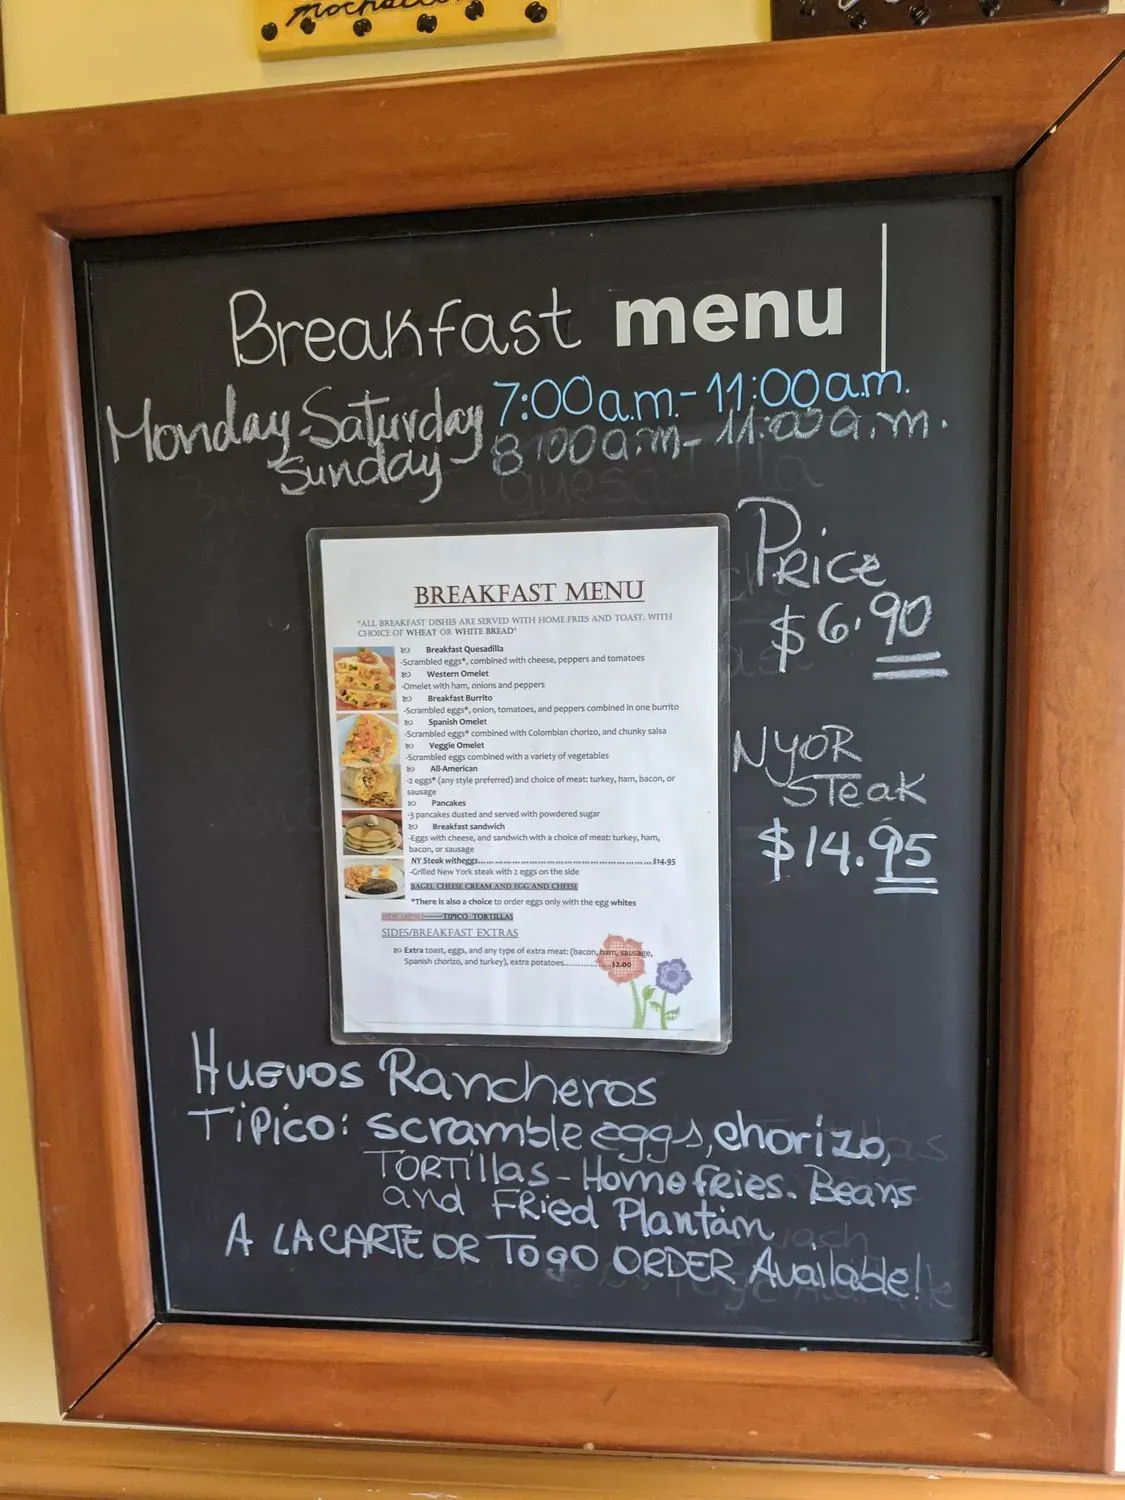 Breakfast menu
Monday-Saturday 7:00a.m.-11:00a.m.
Sunday 8:00a.m.-11:00a.m.
Price
$6.90
NYOR
STeak
$14.95
BREAKFAST MENU
*ALL BREAKFAST DISHES ARE SERVED WITH HOME FRIES AND TOAST. WITH
CHOICE OF WHEAT OR WHITE BREAD*
Breakfast Quesadilla
-Scrambled eggs*, combined with cheese, peppers and tomatoes
Western Omelet
-Omelet with ham, onions and peppers
Breakfast Burrito
-Scrambled eggs*, onion, tomatoes, and peppers combined in one burrito
Spanish Omelet
-Scrambled eggs* combined with Colombian chorizo, and chunky salsa
Veggie Omelet
-Scrambled eggs combined with a variety of vegetables
All-American
-2 eggs* (any style preferred) and choice of meat: turkey, ham, bacon, or
sausage
Pancakes
-3 pancakes dusted and served with powdered sugar
Breakfast sandwich
-Eggs with cheese, and sandwich with a choice of meat: turkey, ham,
bacon, or sausage
NY Steak witheggs...$14.95
-Grilled New York steak with 2 eggs on the side
BAGEL CHEESE CREAM AND EGG AND CHEESE
*There is also a choice to order eggs only with the egg whites
TIPICO TORTILLAS
SIDES/BREAKFAST EXTRAS
Extra toast, eggs, and any type of extra meat: (bacon, ham, sausage,
Spanish chorizo, and turkey), extra potatoes...$2.00
HUEVOS Rancheros
TiPICO: scramble eggs, chorizo,
TORTillas - Home fries. Beans
and FRied Plantain
A LA CARTE OR To go ORDER Available!